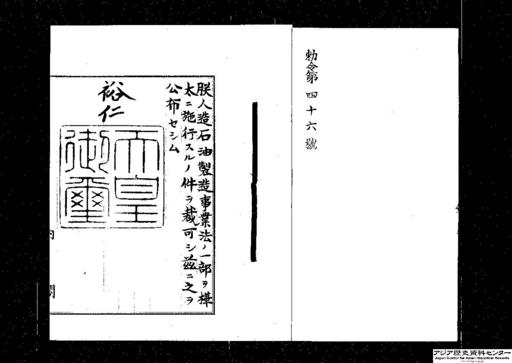 勅令第四十六號
朕人造石油製造事業法ノ一部ヲ樺
太ニ施行スルノ件ヲ裁可シ茲ニ之ヲ
公布セシム
裕仁
天皇
御璽
内閣
アジア歴史資料センター
Japan Center for Asian Historical Records